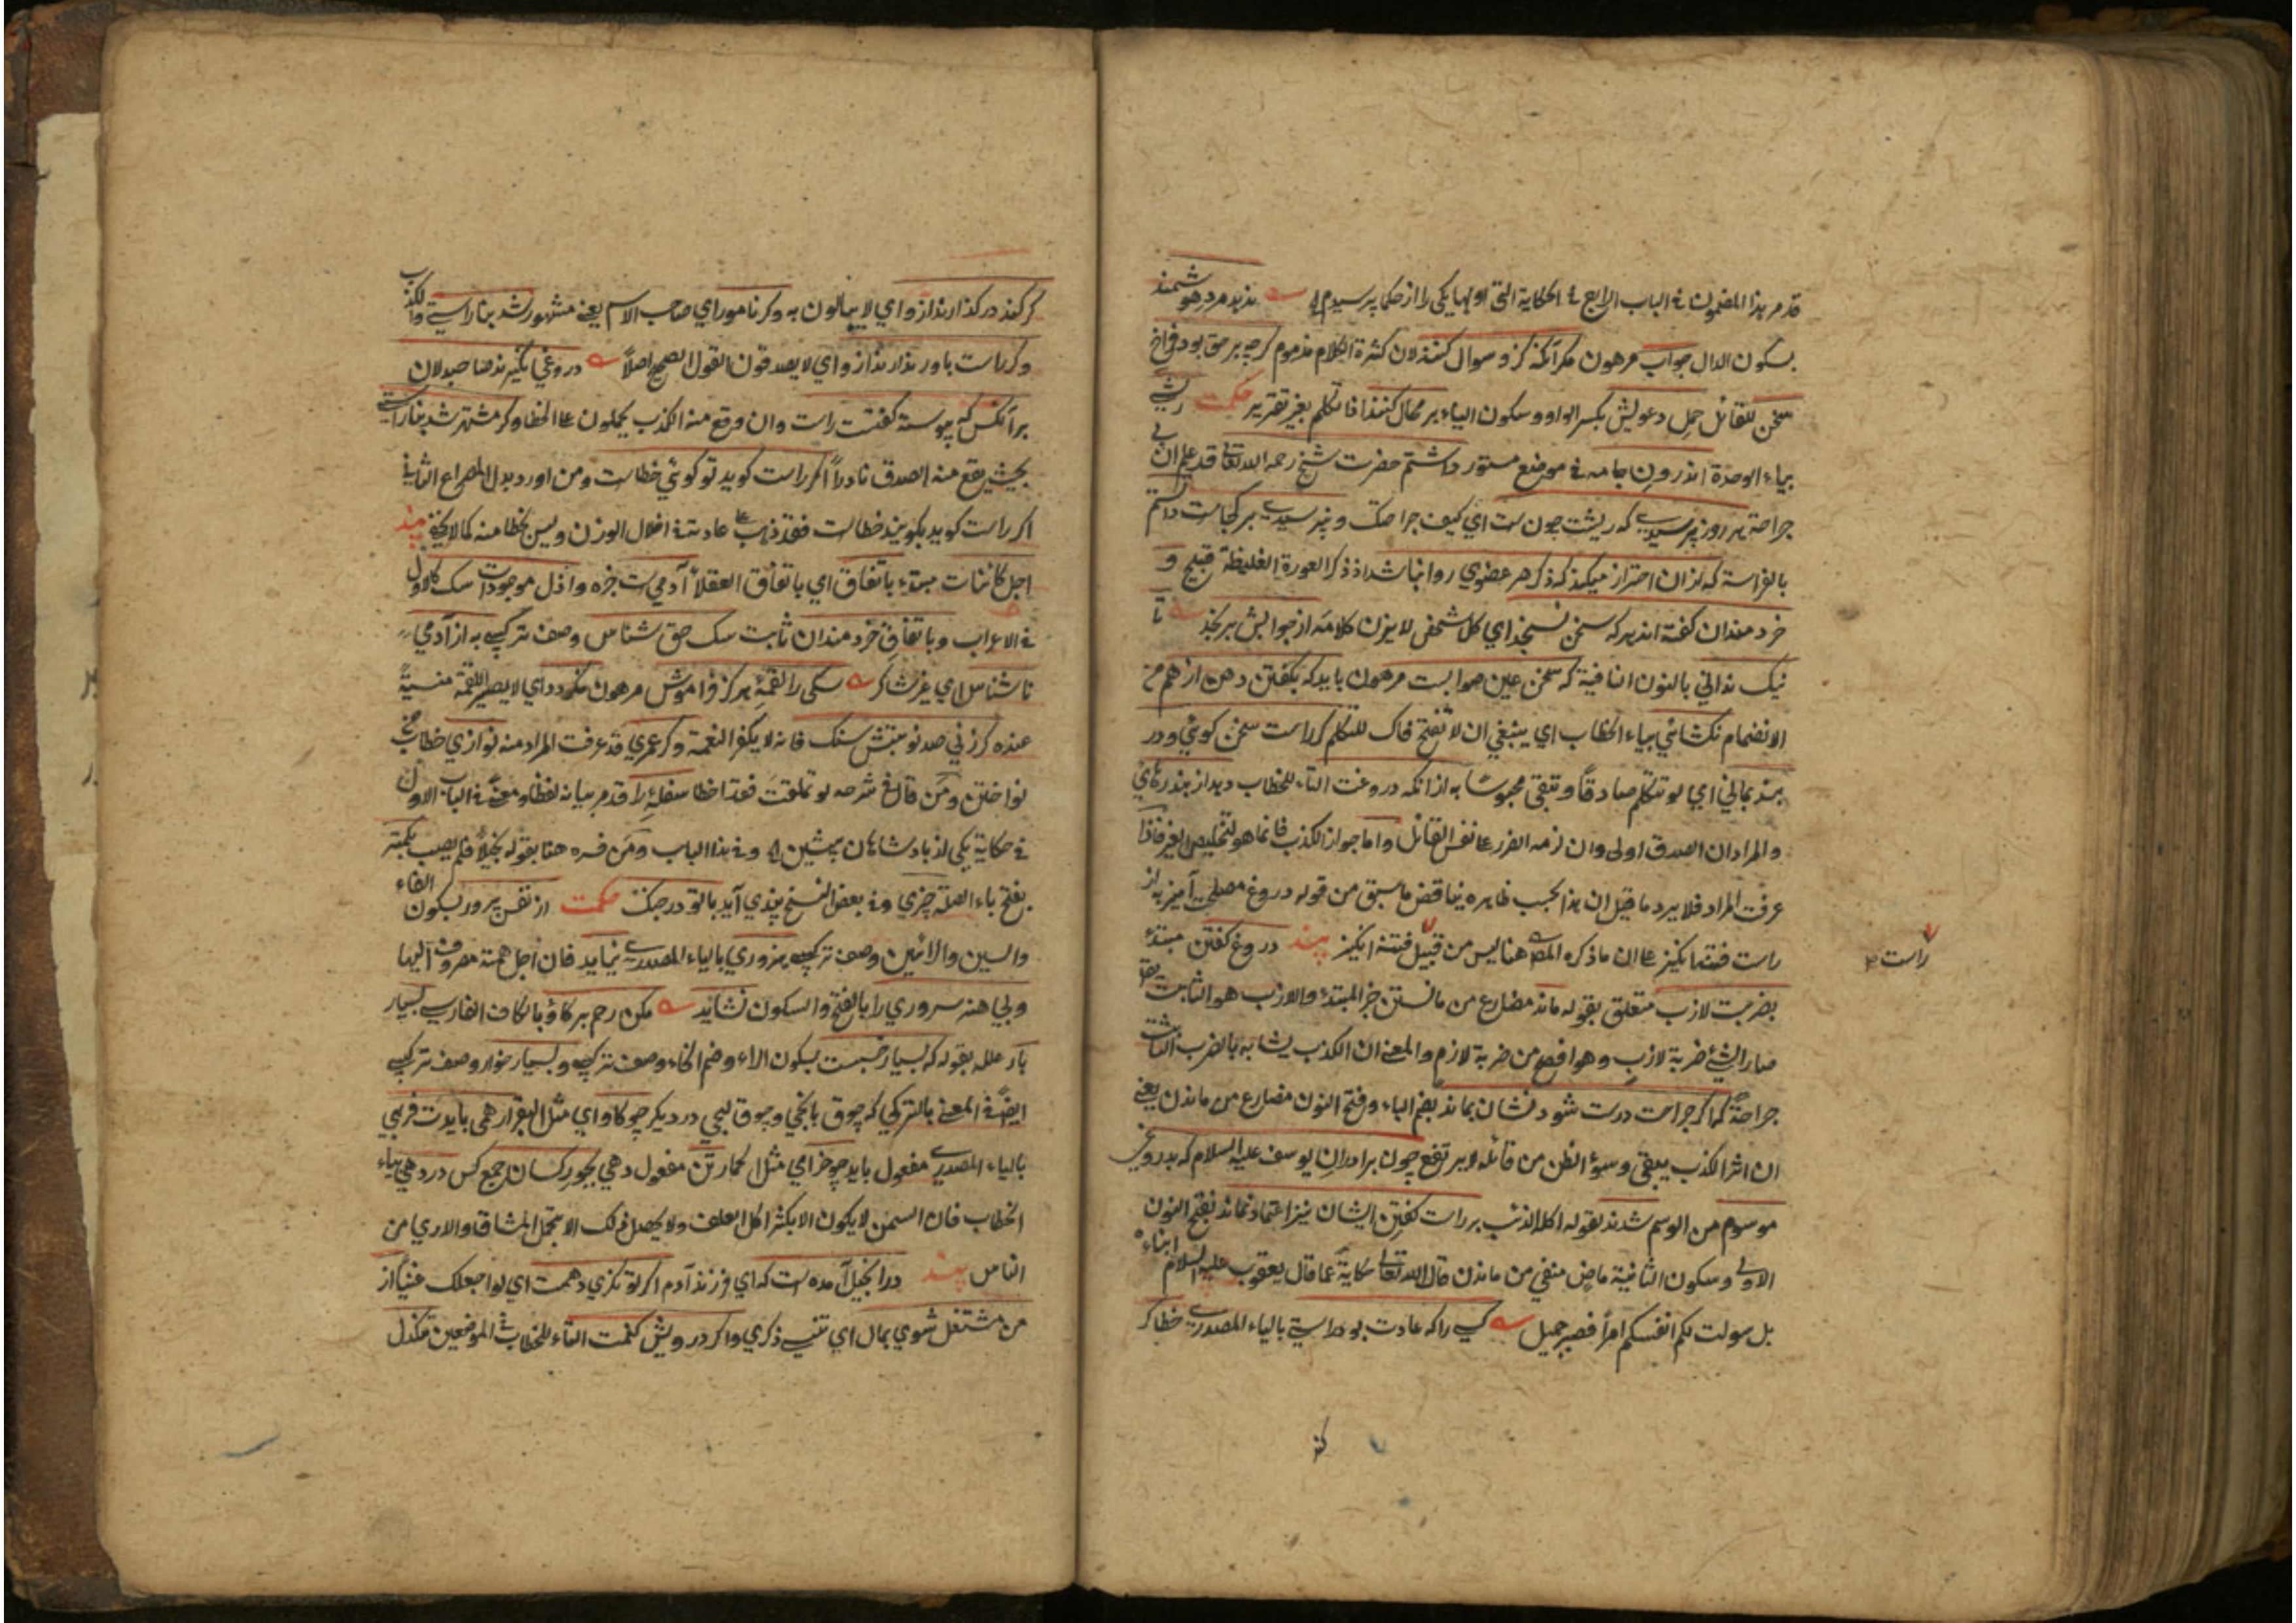 قد مر هذا المضمون في الباب الرابع في الحكاية التي اولها يكي را از حكما پرسيدم ندهد مرد هوشمند
بسكون الدال جواب مرهون مكر آنكه كزو سوال كنند لان كثرة الكلام مذموم كرچه بر حق بود فراخ
سخن للقائل حمل دعويش بكسر الواو وسكون الياء بر محال كنند فا تكلم بغير تقرير حكمت ريشي
بياء الوحدة اندرون جامه في موضع مستور داشتم حضرت شيخ رحمه الله تعالى قد علم ان بي
جراحة هر روز پرسيدي كه ريشت چون ست اي كيف جراحتك و نپرسيدي بر كجاست دانستم
بالفراسة كه از ان احتراز ميكند كه ذكر هر عضوي روا نباشد اذ ذكر العورة الغليظة قبيح و
خردمندان كفته اند هر كه سخن نسنجد اي كل شخص لا يزن كلامه از جوابش برنجد تا
نيك نداني بالنون النافية كه سخن عين صوابست مرهون بايد كه بكفتن دهن از هم من
الانضمام نكشائي بياء الخطاب اي ينبغي ان لا تفتح فاك للتكلم كر راست سخن كوئي ودر
بند بماني اي لو تتكلم صادقا وتبقى محبوسا به از انكه دروغت التاء للخطاب دهد از بند رهائي
والمراد ان الصدق اولى وان لزمه الضرر على نفس القائل واما جواز الكذب فانما هو لتخليص الغير فاذا
عرفت المراد فلا يرد ما قيل ان هذا بحسب ظاهره يناقض ما سبق من قوله دروغ مصلحت آميز به از
راست فتنه انكيز على ان ما ذكره المص هنا ليس من قبيل فتنه انكيز پند دروغ كفتن مبتدء
راست
بضربت لازب متعلق بقوله ماند مضارع من مانستن خبر المبتدء واللازب هو الثابت يقال
صار الشئ ضربة لازب وهو افصح من ضربة لازم والمعنى ان الكذب يشابه بالضرب الثابت
جراحة كه اكر جراحت درست شود نشان بماند بضم الباء وفتح النون مضارع من ماندن يعني
ان اثر الكذب يبقى وسوء الظن من قائله لا يرتفع چون برادران يوسف عليه السلام كه بدروغي
موسوم من الوسم شدند بقوله اكله الذئب بر راست كفتن ايشان نيز اعتماد نماند بفتح النون
الاولى وسكون الثانية ماض منفي من ماندن قال الله تعالى حكاية عما قال يعقوب عليه السلام ابناءه
بل سولت لكم انفسكم امرا فصبر جميل كسي را كه عادت بود راستي بالياء المصدري خطا كر
كند
كر كند در كذارند ازو اي لا يبالون به وكر نامور اي صاحب الاسم يعني مشهور شد بناراستي والكذب
وكر راست باور ندارند ازو اي لا يصدقون القول الصحيح اصلا دروغي نكيرند صاحبدلان
بر آنكس كه پيوسته كفتست راست وان وقع منه الكذب يحملون على الخطا وكر مشتهر شد بناراستي
بحيث يقع منه الصدق نادرا اكر راست كويد تو كوئي خطاست ومن اورد بدل المصراع الثاني
اكر راست كويد بكويند خطاست فقد ذهب على عادته في اخلال الوزن وليس بخطا منه كما لا يخفى پند
اجل كائنات مبتدء باتفاق اي باتفاق العقلاء آدمي ست خبره واذل موجودات سك كالاول
في الاعراب وباتفاق خردمندان ثابت سك حق شناس وصف تركيبي به از آدمي
ناشناس اي غير شاكر سكي را لقمهٔ هركز فراموش مرهون نكردد اي لا يصير اللقمة منسية
عنده كر زني صد نوبتش سنك فانه لا يكفر النعمة وكر عمري قد عرفت المراد منه نوازي خطاب من
نواختن ومن قال في شرحه لو تملقت فقد اخطا سفلهٔ را قد مر بيانه لفظا ومعنى في الباب الاول
في حكاية يكي از پادشاهان پيشين وفي هذا الباب ومن فسره هنا بقوله بخيلا فلم يصب بكمتر
بفتح باء الصلة چيزي وفي بعض النسخ پندي آيد با تو در جنك حكمت از نفس پرور بسكون الفاء
والسين والرائين وصف تركيبي هنروري بالياء المصدري نيايد فان اجل همته مصروف اليها
وبي هنر سروري را بالفتح والسكون نشايد مكن رحم بر كاو بالكاف الفارسي بسيار
بار علله بقوله كه بسيار خسبست بسكون الراء وضم الخاء وصف تركيبي وبسيار خوار وصف تركيبي
ايضا في المعنى بالتركي كه چوق ياتخي وچوق ييجي در ديكر چو كاو اي مثل البقر ار همي بايدت فربهي
بالياء المصدري مفعول بايد چو خر اي مثل الحمار تن مفعول دهي بجور كسان جمع كس در دهي بياء
الخطاب فان السمن لا يكون الا بكثر اكل العلف ولا يحصل ذلك الا بتحمل المشاق والاري من
الناس پند در انجيل آمده است كه اي فرزند آدم اكر توانكري دهمت اي لو اجعلك غنيا از
من مشتغل شوي بمال اي تنسى ذكري واكر درويش كنمت التاء للخطاب في الموضعين تنكدل